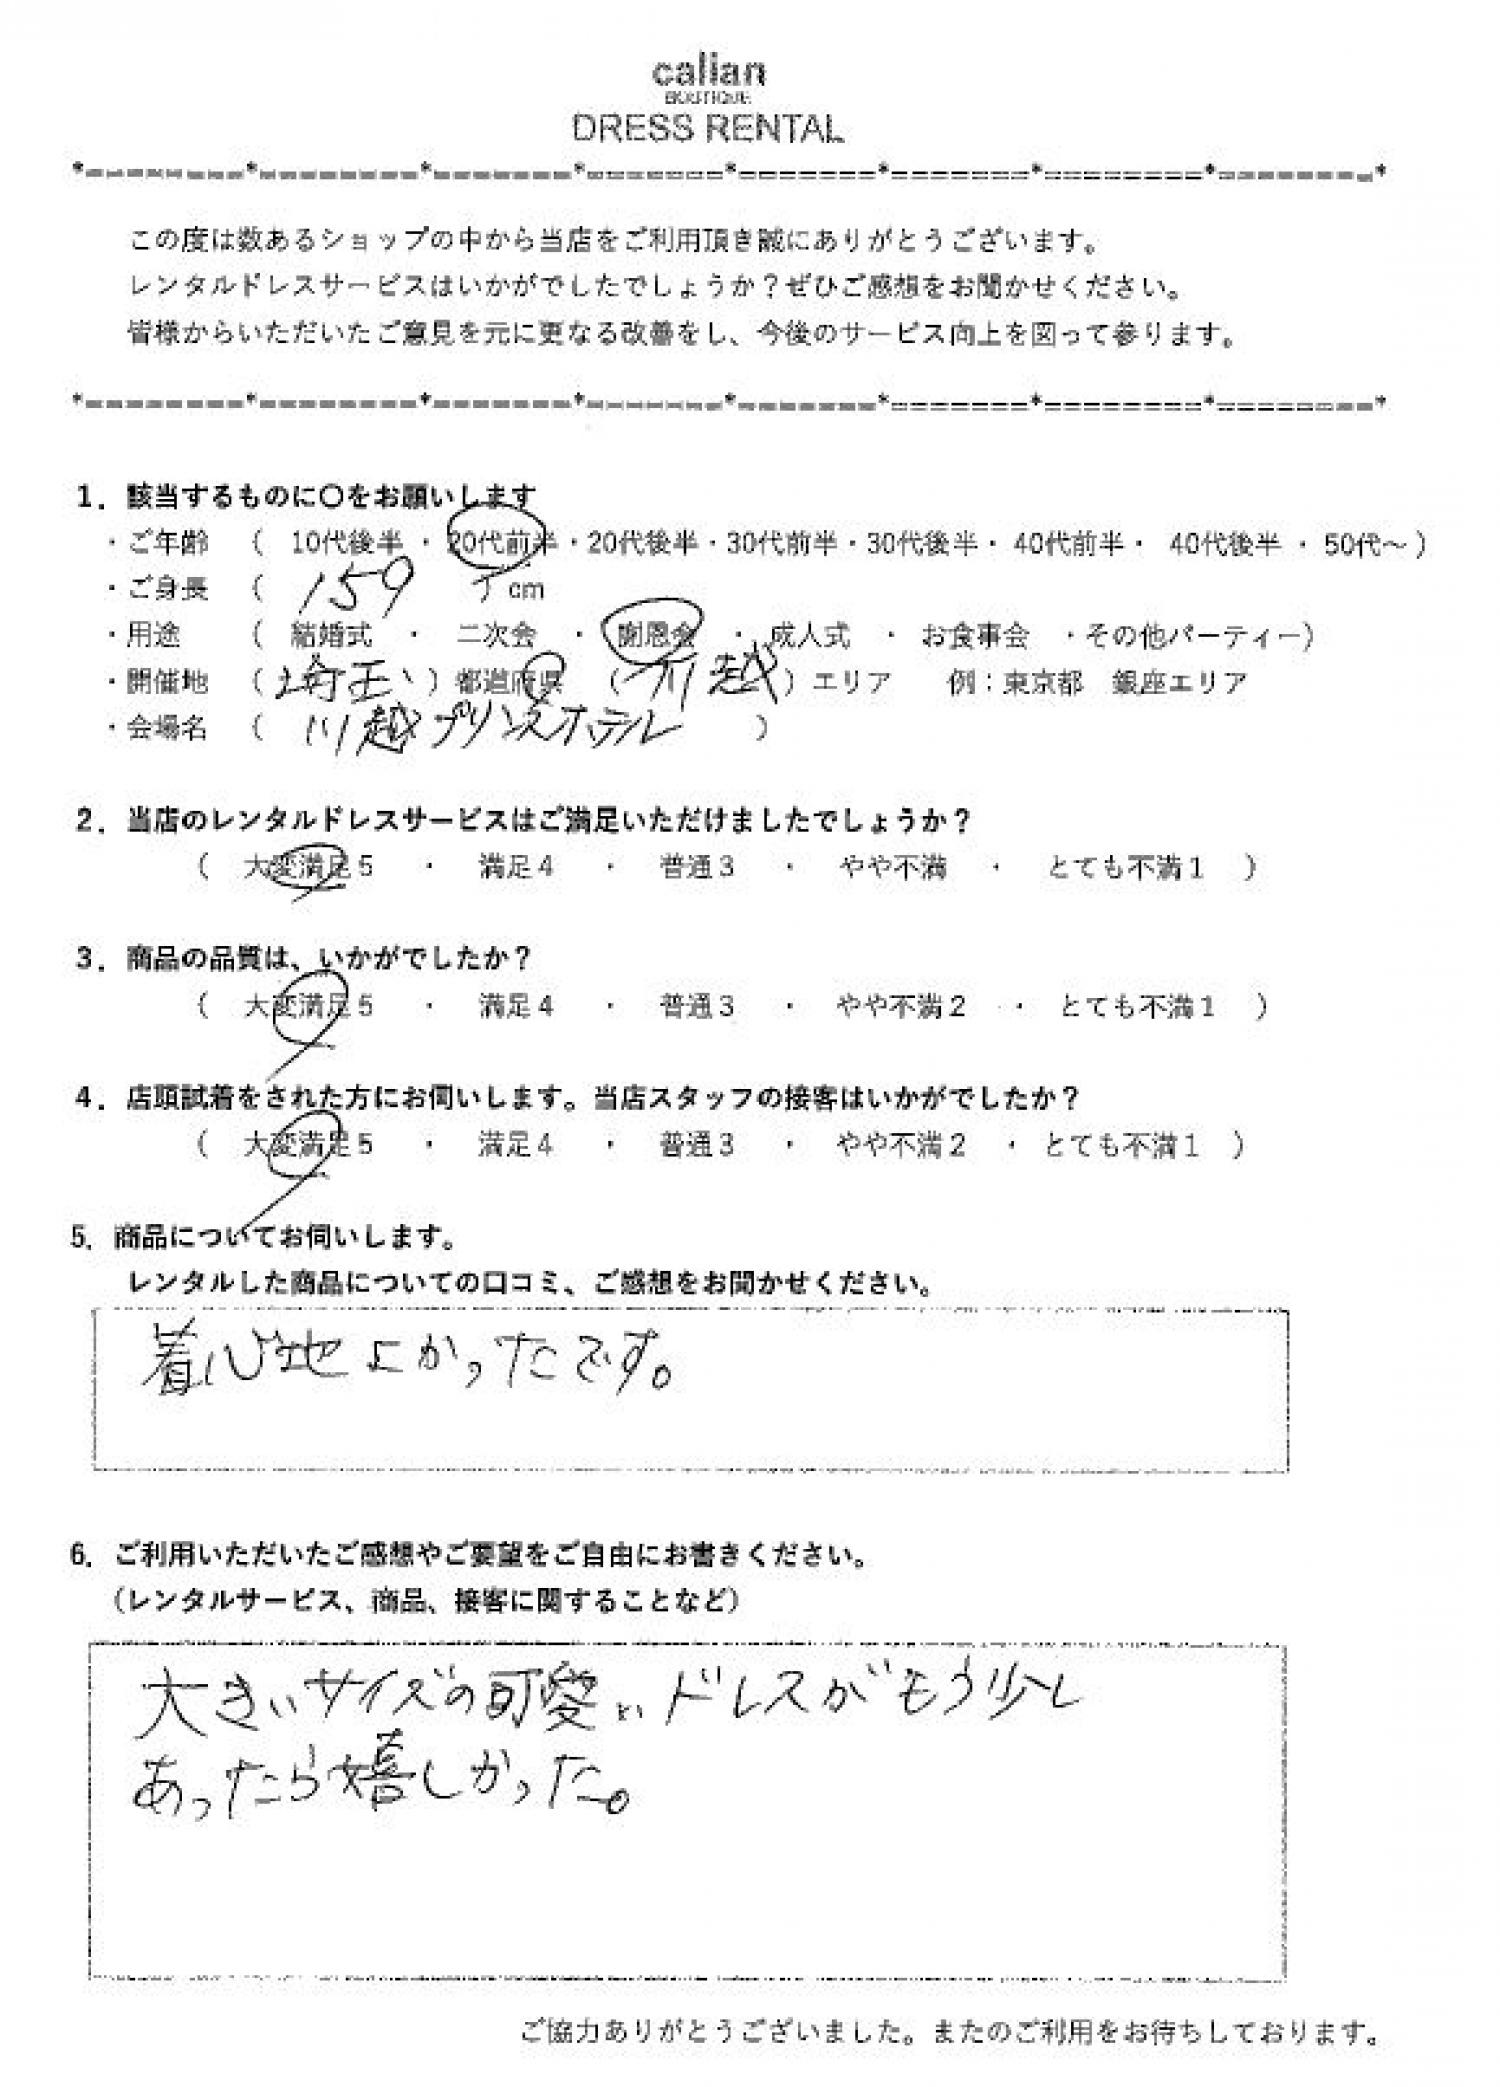 calian
BOUTIQUE
DRESS RENTAL
*--------*--------*-------*-------*-------*-------*--------*--------*
この度は数あるショップの中から当店をご利用頂き誠にありがとうございます。
レンタルドレスサービスはいかがでしたでしょうか？ぜひご感想をお聞かせください。
皆様からいただいたご意見を元に更なる改善をし、今後のサービス向上を図って参ります。
*--------*--------*-------*-------*-------*-------*--------*--------*
1．該当するものに〇をお願いします
・ご年齢 （ 10代後半 ・ 20代前半・20代後半・30代前半・30代後半・ 40代前半・ 40代後半 ・ 50代～）
・ご身長 （ 159 ）cm
・用途 （ 結婚式 ・ 二次会 ・ 謝恩会 ・ 成人式 ・ お食事会 ・その他パーティー）
・開催地 （埼玉）都道府県 （川越）エリア 例：東京都 銀座エリア
・会場名 （ 川越プリンスホテル ）
2．当店のレンタルドレスサービスはご満足いただけましたでしょうか？
（ 大変満足５ ・ 満足４ ・ 普通３ ・ やや不満 ・ とても不満１ ）
3．商品の品質は、いかがでしたか？
（ 大変満足５ ・ 満足４ ・ 普通３ ・ やや不満２ ・ とても不満１ ）
4．店頭試着をされた方にお伺いします。当店スタッフの接客はいかがでしたか？
（ 大変満足５ ・ 満足４ ・ 普通３ ・ やや不満２ ・ とても不満１ ）
5．商品についてお伺いします。
レンタルした商品についての口コミ、ご感想をお聞かせください。
着心地よかったです。
6．ご利用いただいたご感想やご要望をご自由にお書きください。
（レンタルサービス、商品、接客に関することなど）
大きいサイズの可愛いドレスがもう少し
あったら嬉しかった。
ご協力ありがとうございました。またのご利用をお待ちしております。